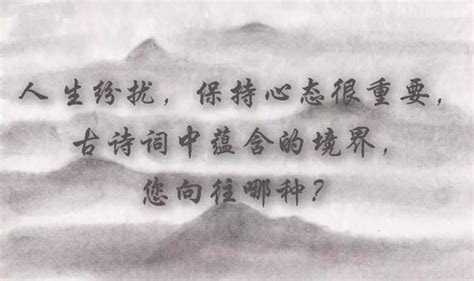 人生纷扰，保持心态很重要，
古诗词中蕴含的境界，
您向往哪种？